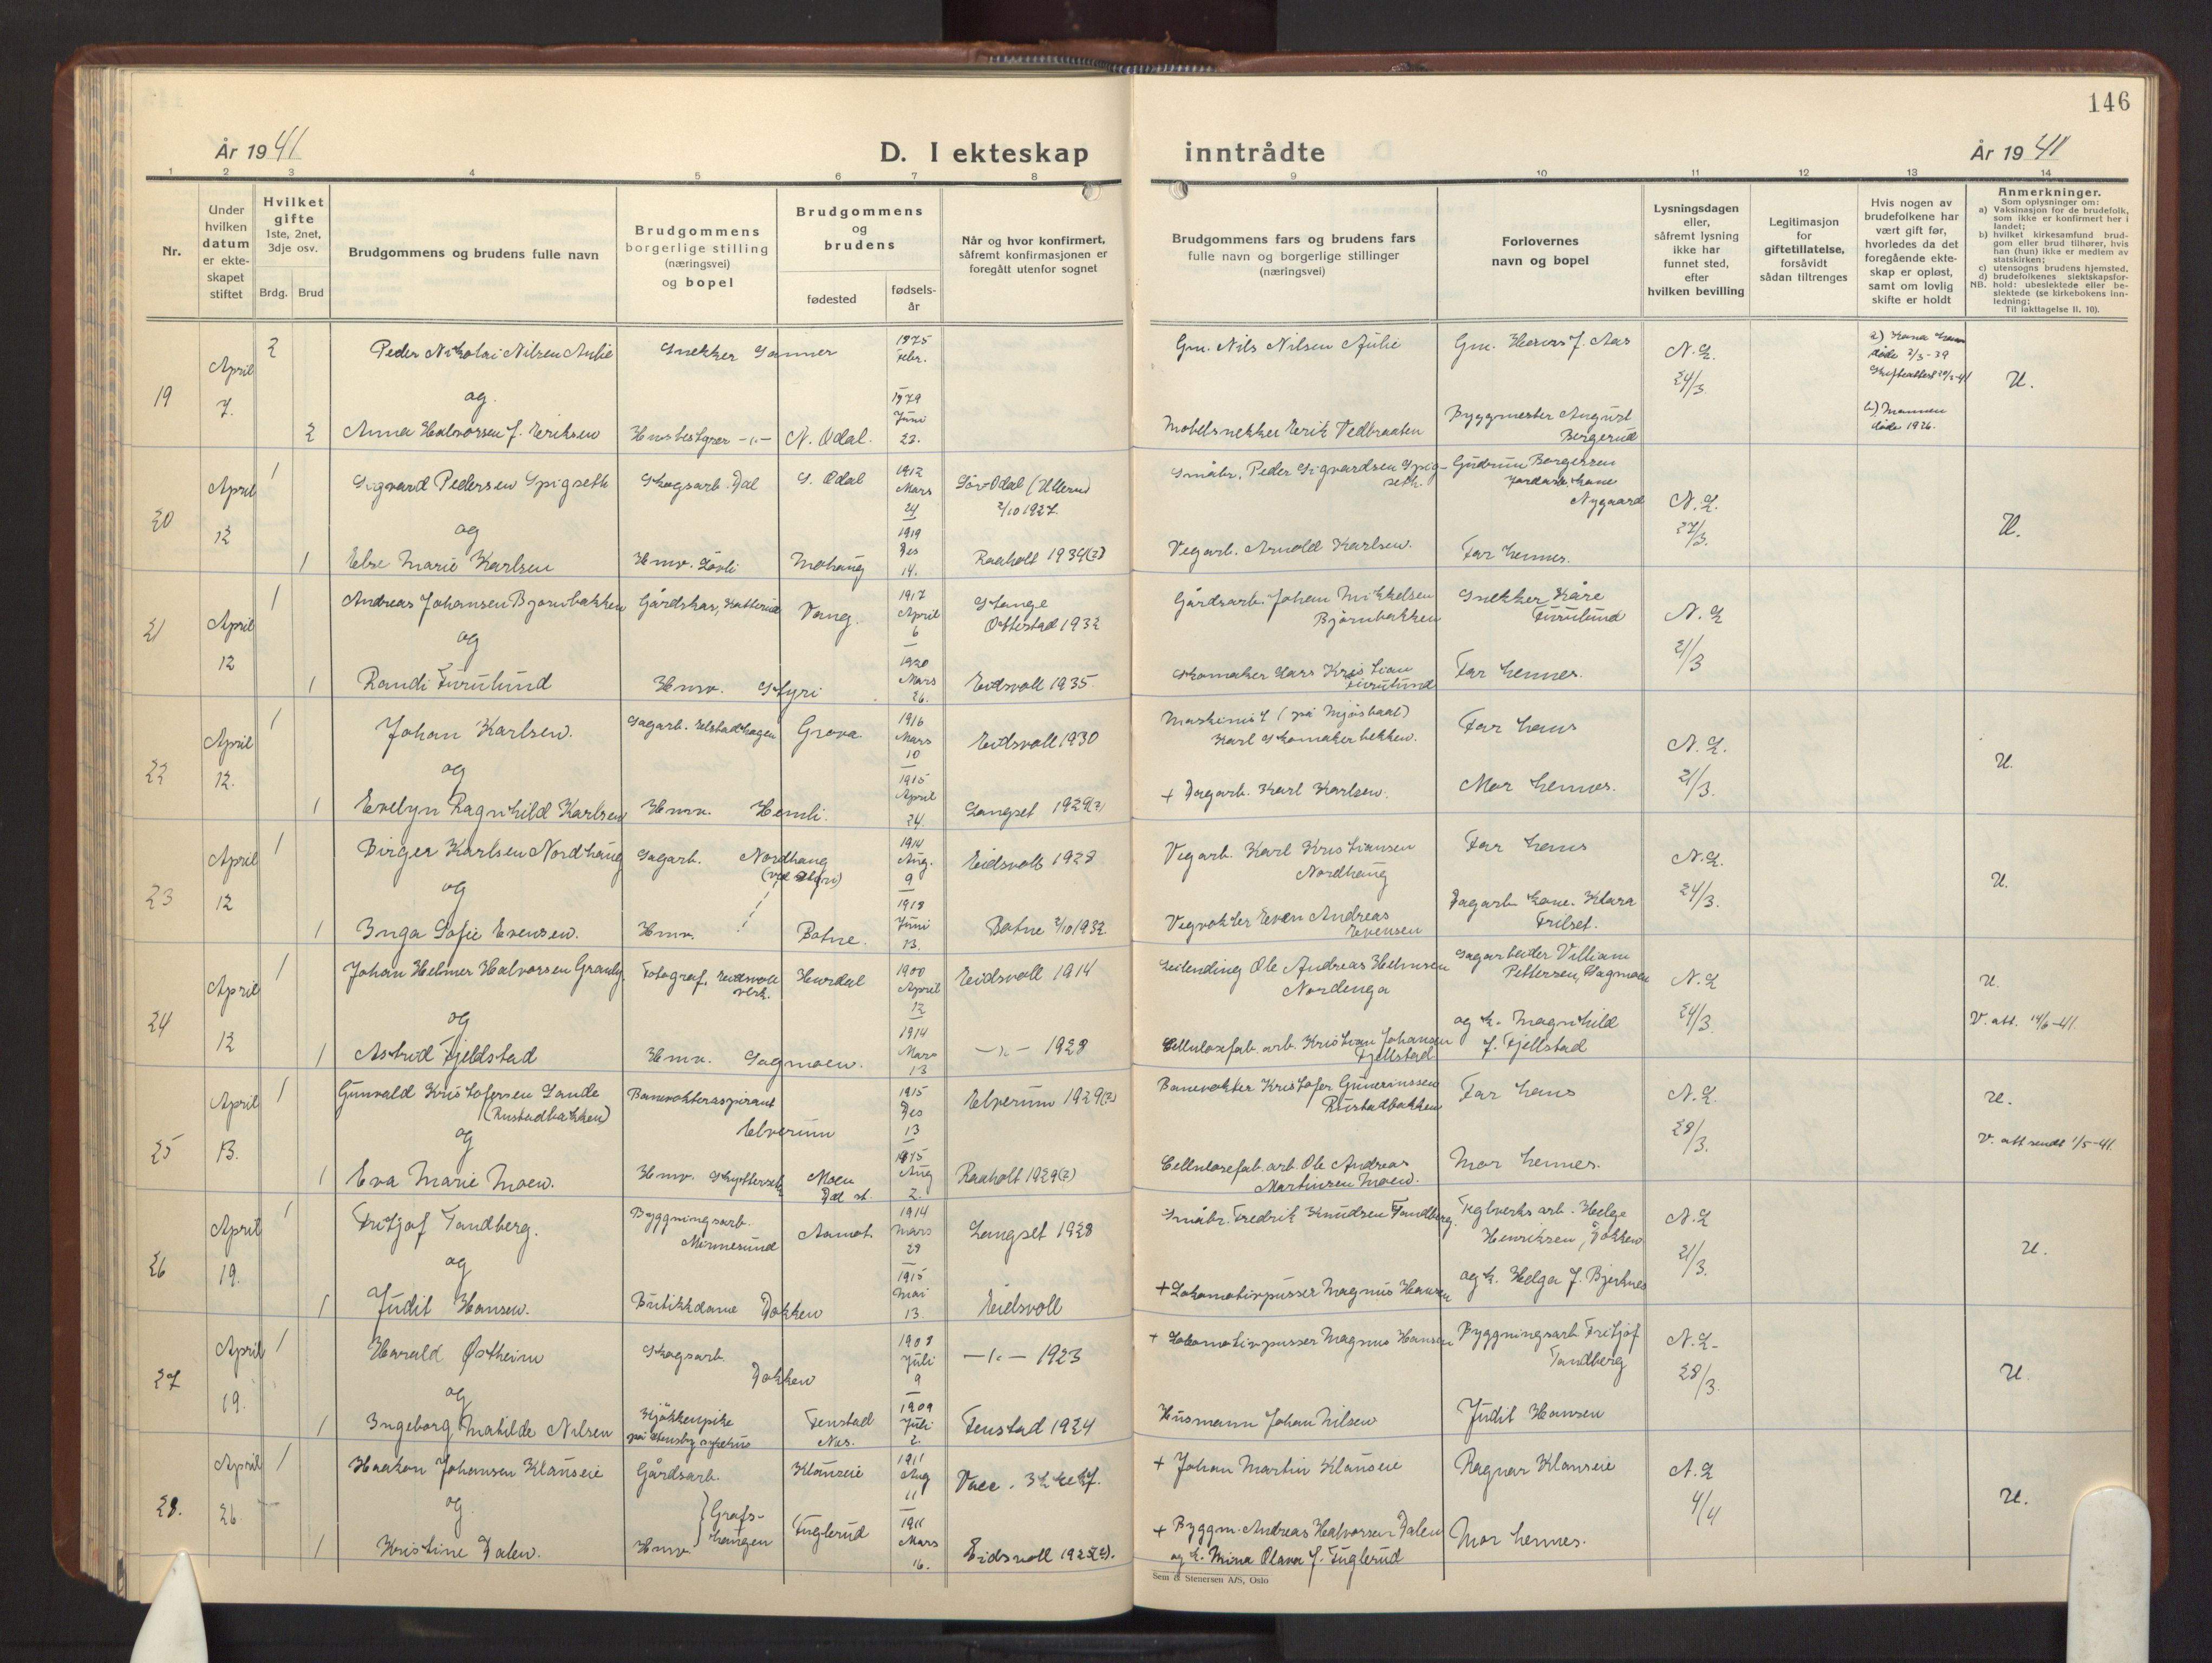 146
År 1941
D. I ekteskap inntrådte
År 1941
1 2 3 4 5 6 7 8 9 10 11 12 13 14
Nr.
Under
hvilken
datum
er ekte-
skapet
stiftet
Hvilket
gifte
1ste, 2net,
3dje osv.
Brdg. Brud
Brudgommens og brudens fulle navn
Brudgommens
borgerlige stilling
(næringsvei)
og bopel
Brudgommens
og
brudens
fødested
fødsels-
år
Når og hvor konfirmert,
såfremt konfirmasjonen er
foregått utenfor sognet
Brudgommens fars og brudens fars
fulle navn og borgerlige stillinger
(næringsvei)
Forlovernes
navn og bopel
Lysningsdagen
eller,
såfremt lysning
ikke har
funnet sted,
efter
hvilken bevilling
Legitimasjon
for
giftetillatelse,
forsåvidt
sådan tiltrenges
Hvis nogen av
brudefolkene har
vært gift før,
hvorledes da det
foregående ekte-
skap er opløst,
samt om lovlig
skifte er holdt
Anmerkninger.
Som oplysninger om:
a) Vaksinasjon for de brudefolk,
som ikke er konfirmert her i
landet;
b) hvilket kirkesamfund brud-
gom eller brud tilhører, hvis
han (hun) ikke er medlem av
statskirken;
c) utensogns brudens hjemsted.
d) brudefolkenes slektskapsfor-
NB. hold: ubeslektede eller be-
slektede (se kirkebokens inn-
ledning;
Til iakttagelse II. 10).
19
April
7.
2
Peder Nikolai Nilsen Aulie
Snekker Sanner
1875
Febr.
Gm. Nils Nilsen Aulie
N. L.
24/3
a) Kona
døde 2/3-39
U.
og
2
Anna Halvorsen f. Eriksen
N. Odal.
1879
Juni
22.
Møbelsnekker Erik Vedbraaten
Byggmester August
Bergerud
b) Mannen
døde 1926.
20
April
12
1
Sigvard Pedersen Spigseth
Skogsarb. Dal
S. Odal
1912
Mars
24
Sør-Odal (Ullern)
2/10 1927.
Småbr. Peder Sigvardsen Spig-
seth.
Gudrun Borgersen
Nygaard
N. L.
27/3.
U.
og
1
Else Marie Karlsen
Hmv. Løvli
Mohaug
1919
Des
14.
Raaholt 1934(2)
Vegarb. Arnold Karlsen.
Far hennes.
21
April
12
1
Andreas Johansen Bjørnbakken
Vang.
1917
April
6
Stange
Ottestad 1932
Gårdsarb. Johan Mikkelsen
Bjørnbakken
Snekker Kåre
Furulund
N. L
21/3
og
1
Randi Furulund
Hmv. Styri
1920
Mars
26.
Eidsvoll 1935
Skomaker Hans Kristian
Furulund
Far hennes.
22
April
12.
1
Johan Karlsen.
Sagarb. Elstadhagen
Grova
1916
Mars
10
Eidsvoll 1930
Maskinist (på Mjøsbaat)
Karl Skomakerbekken.
Far hans
N. L.
21/3.
U.
og
1
Evelyn Ragnhild Karlsen
Hmv. Hemli.
1915
April
24.
Langset 1929(2)
+ Dagarb. Karl Karlsen.
Mor hennes.
23
April
12
1
Birger Karlsen Nordhaug
Sagarb. Nordhaug
(ved Styri)
1914
Aug.
9
Eidsvoll 1928
Vegarb. Karl Kristiansen
Nordhaug
Far hans
N. L.
24/3.
U.
og
1
Inga Sofie Evensen.
Hmv.
Botne.
1918
Juni
13.
Botne 2/10 1932
Vegvokter Even Andreas
Evensen
Dagarb. kone Klara
Frilset.
24
April
12
1
Johan Helmer Halvorsen Granly.
Fotograf, Eidsvoll
verk.
Hurdal
1900
April
12
Eidsvoll 1914
Leilending Ole Andreas Helmsen
Nordenga
Sagarbeider Villiam
Pettersen, Sagmoen
N. L
24/3.
U.
V. att. 14/6-41.
og
1
Astrid Fjeldstad
Hmv. Sagmoen.
1914
Mars
13
—"— 1928
Cellulosefab. arb. Kristian Johansen
Fjellstad
og h. Magnhild
f. Fjellstad
25
April
13.
1
Gunvald Kristofersen Sande
(Rustadbakken)
Banevokteraspirant
Elverum
1915
Des
13
Elverum 1929(2)
Banevokter Kristofer Gunerinssen
Rustadbakken
Far hans
N. L.
28/3.
U.
V. att sendt 1/5-41.
og
1
Eva Marie Moen.
Moen
Dal st.
1915
Aug
2.
Raaholt 1929(2)
Cellulosefab. arb. Ole Andreas
Martinsen Moen.
Mor hennes.
26
April
19.
1
Fritjof Tandberg.
Byggningsarb.
Minnesund
Aamot.
1914
Mars
28
Langset 1928
Småbr. Fredrik Knudsen Tandberg.
Teglverksarb. Helge
Henriksen, Dokken
N. L
21/3.
U.
og
1
Judit Hansen.
Butikkdame Dokken
1915
Mai
13
Eidsvoll
+ Lokomotivpusser Magnus Hansen
og h. Helga f. Bjerknes
27
April
19.
1
Harald Østheim
Skogsarb.
Dokken
1908
Juli
9
—"— 1923
+ Lokomotivpusser Magnus Hansen
Byggningsarb Fritjof
Tandberg
N. L.
28/3.
U.
og
1
Ingeborg Mathilde Nilsen
Kjøkkenpike
på Stensby sykehus
Fenstad
Nes.
1909
Juli
2.
Fenstad 1924
Husmann Johan Nilsen
Judit Hansen
28.
April
26
1
Haakon Johansen Klanseie
Gårdsarb.
Klanseie
1911
Aug
11
Vacc. Ikke kf.
+ Johan Martin Klanseie
Ragnar Klanseie
N. L
4/4
U.
og
} Grafs-
haugen
1
Kristine Dalen.
Hmv.
Fuglerud
1911
Mars
16.
Eidsvoll 1925(2).
+ Byggm. Andreas Halvorsen Dalen
og h. Mina Olava f. Fuglerud
Mor hennes.
Sem & Stenersen A/S, Oslo